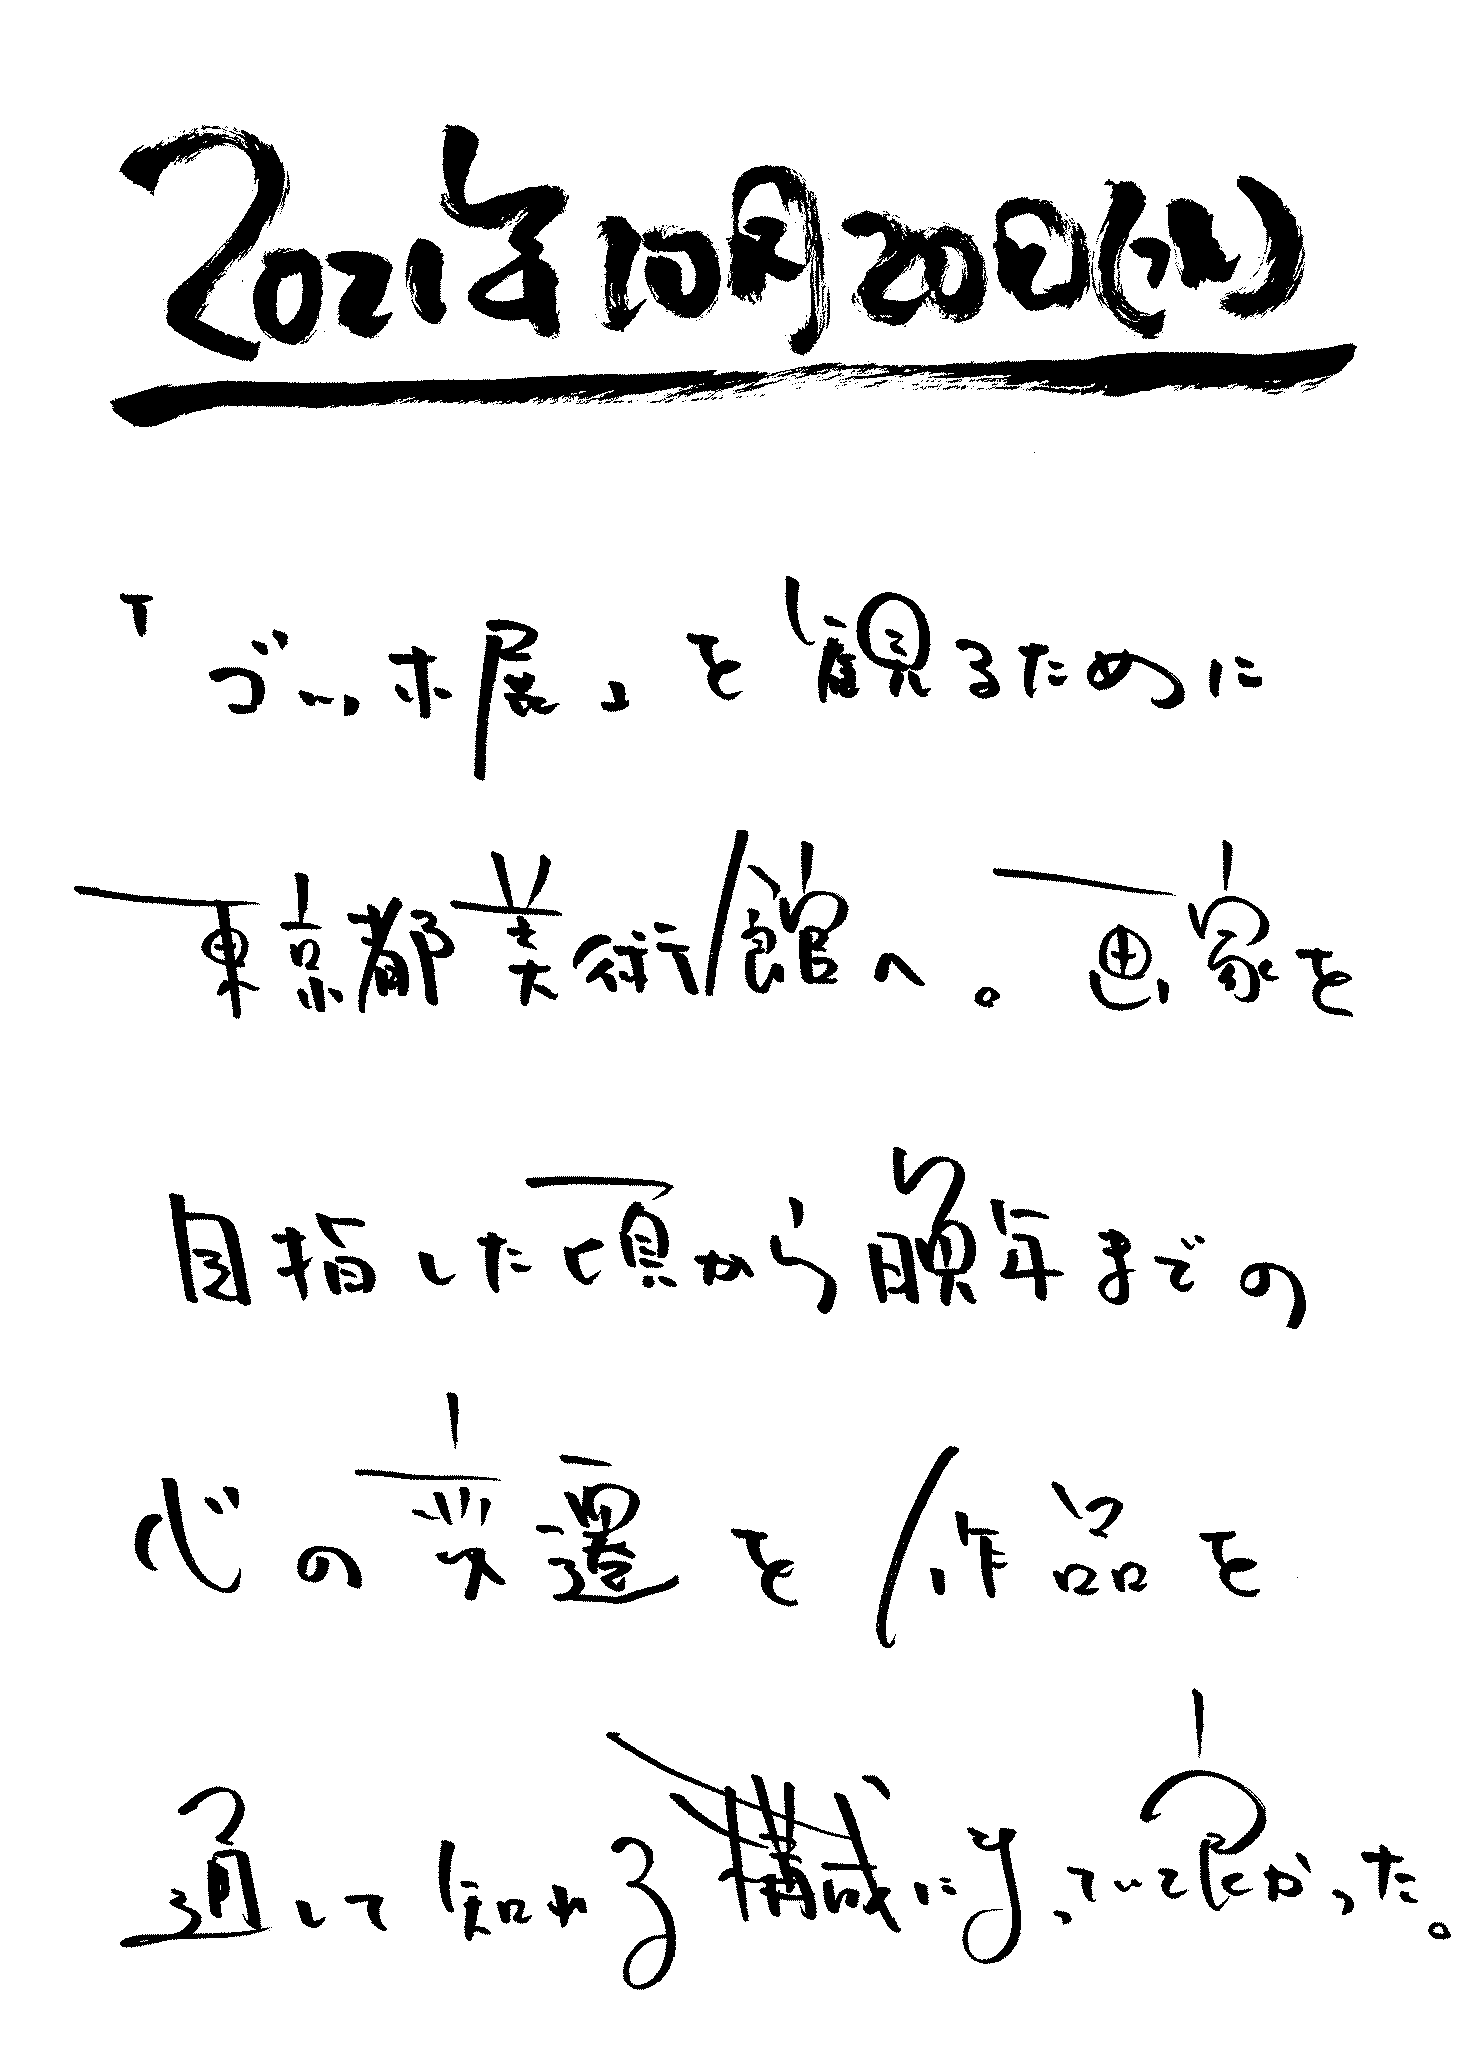 2021年10月20日(水)
「ゴッホ展」を観るために
東京都美術館へ。画家を
目指した頃から晩年までの
心の変遷を作品を
通して知れる構成になっていて良かった。